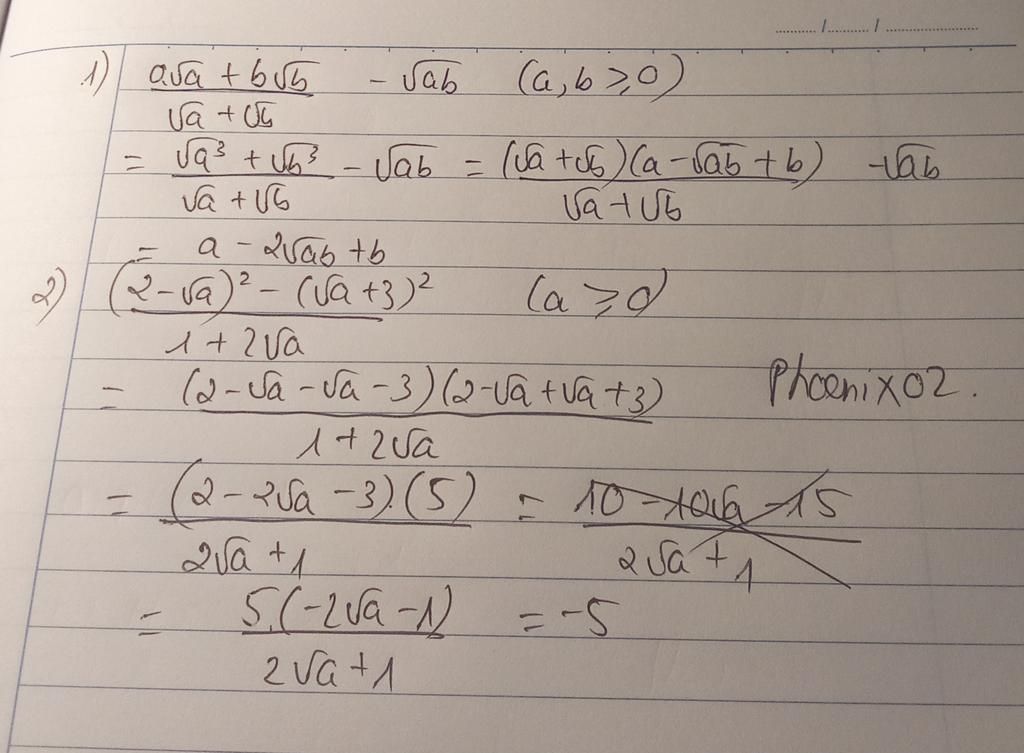 1) (a√a + b√b)/(√a + √b) - √ab (a, b ⩾ 0)
= (√a³ + √b³)/(√a + √b) - √ab = (√a + √b)(a - √ab + b)/(√a + √b) - √ab
= a - 2√ab + b
2) ((2 - √a)² - (√a + 3)²)/(1 + 2√a) (a ⩾ 0)
= (2 - √a - √a - 3)(2 - √a + √a + 3)/(1 + 2√a) Phoenix02.
= (2 - 2√a - 3).(5)/(2√a + 1) = (10 - 10√a - 15)/(2√a + 1)
= 5.(-2√a - 1)/(2√a + 1) = -5